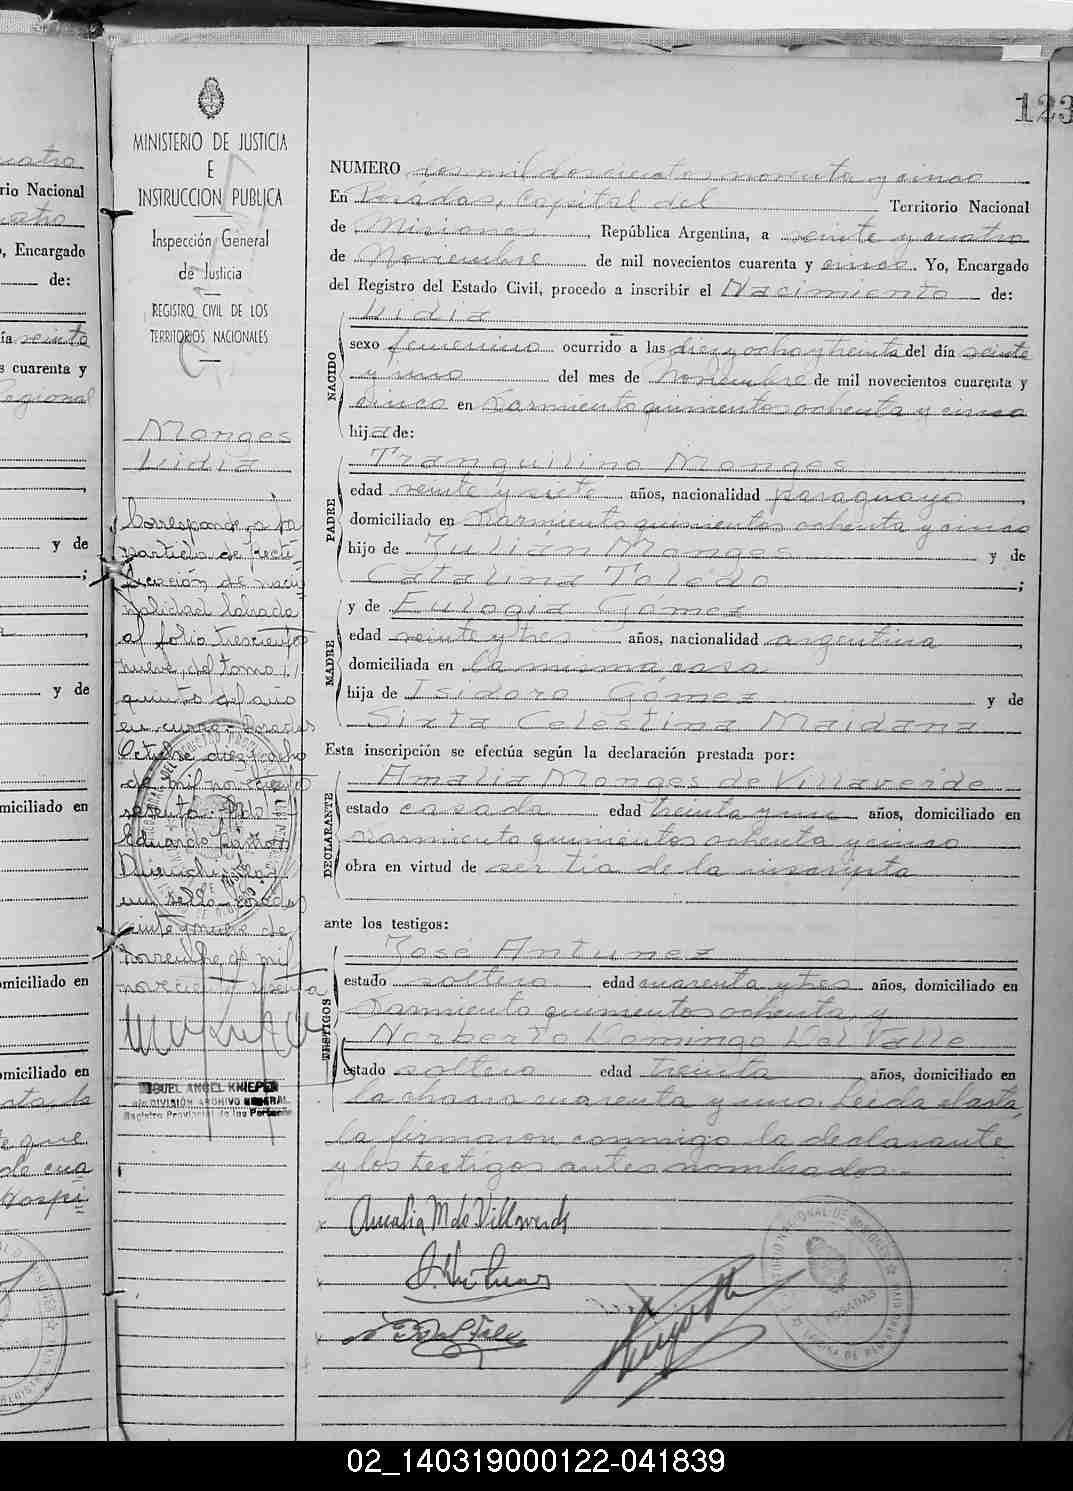 123
MINISTERIO DE JUSTICIA
E
INSTRUCCION PUBLICA
Inspección General
de Justicia
REGISTRO CIVIL DE LOS
TERRITORIOS NACIONALES
Monges
Lidia
Corresponde a la
partida de
labrada
al folio trescientos
nueve, del tomo
quinto del año
en curso Posadas
Octubre dieciocho
de mil novecientos
sesenta. Fdo
Eduardo
un sello. Posadas
veinte y nueve de
noviembre de mil
novecientos sesenta
MIGUEL ANGEL KNIEPER
DIVISIÓN ARCHIVO GENERAL
Registro Provincial de las Personas
NUMERO dos mil doscientos noventa y cinco
En Posadas, Capital del Territorio Nacional
de Misiones, República Argentina, a veinte y cuatro
de Noviembre de mil novecientos cuarenta y cinco. Yo, Encargado
del Registro del Estado Civil, procedo a inscribir el Nacimiento de:
NACIDO
Lidia
sexo femenino ocurrido a las diez y ocho y treinta del día veinte
y uno del mes de Noviembre de mil novecientos cuarenta y
cinco en Sarmiento quinientos ochenta y cinco
hija de:
PADRE
Tranquilino Monges
edad veinte y siete años, nacionalidad paraguayo
domiciliado en Sarmiento quinientos ochenta y cinco
hijo de Julián Monges y de
Catalina Toledo;
MADRE
y de Eulogia Gómez
edad veinte y tres años, nacionalidad argentina,
domiciliada en la misma casa
hija de Isidoro Gómez y de
Sixta Celestina Maidana
Esta inscripción se efectúa según la declaración prestada por:
DECLARANTE
Amalia Monges de Villaverde
estado casada edad treinta y uno años, domiciliado en
Sarmiento quinientos ochenta y cinco
obra en virtud de ser tía de la inscripta
ante los testigos:
TESTIGOS
José Antunez
estado soltero edad cuarenta y tres años, domiciliado en
Sarmiento quinientos ochenta, y
Norberto Domingo Del Valle
estado soltero edad treinta años, domiciliado en
la chacra cuarenta y uno. Leída el acta,
la firmaron conmigo la declarante
y los testigos antes nombrados.
Amalia M de Villaverde
POSADAS
02_140319000122-041839